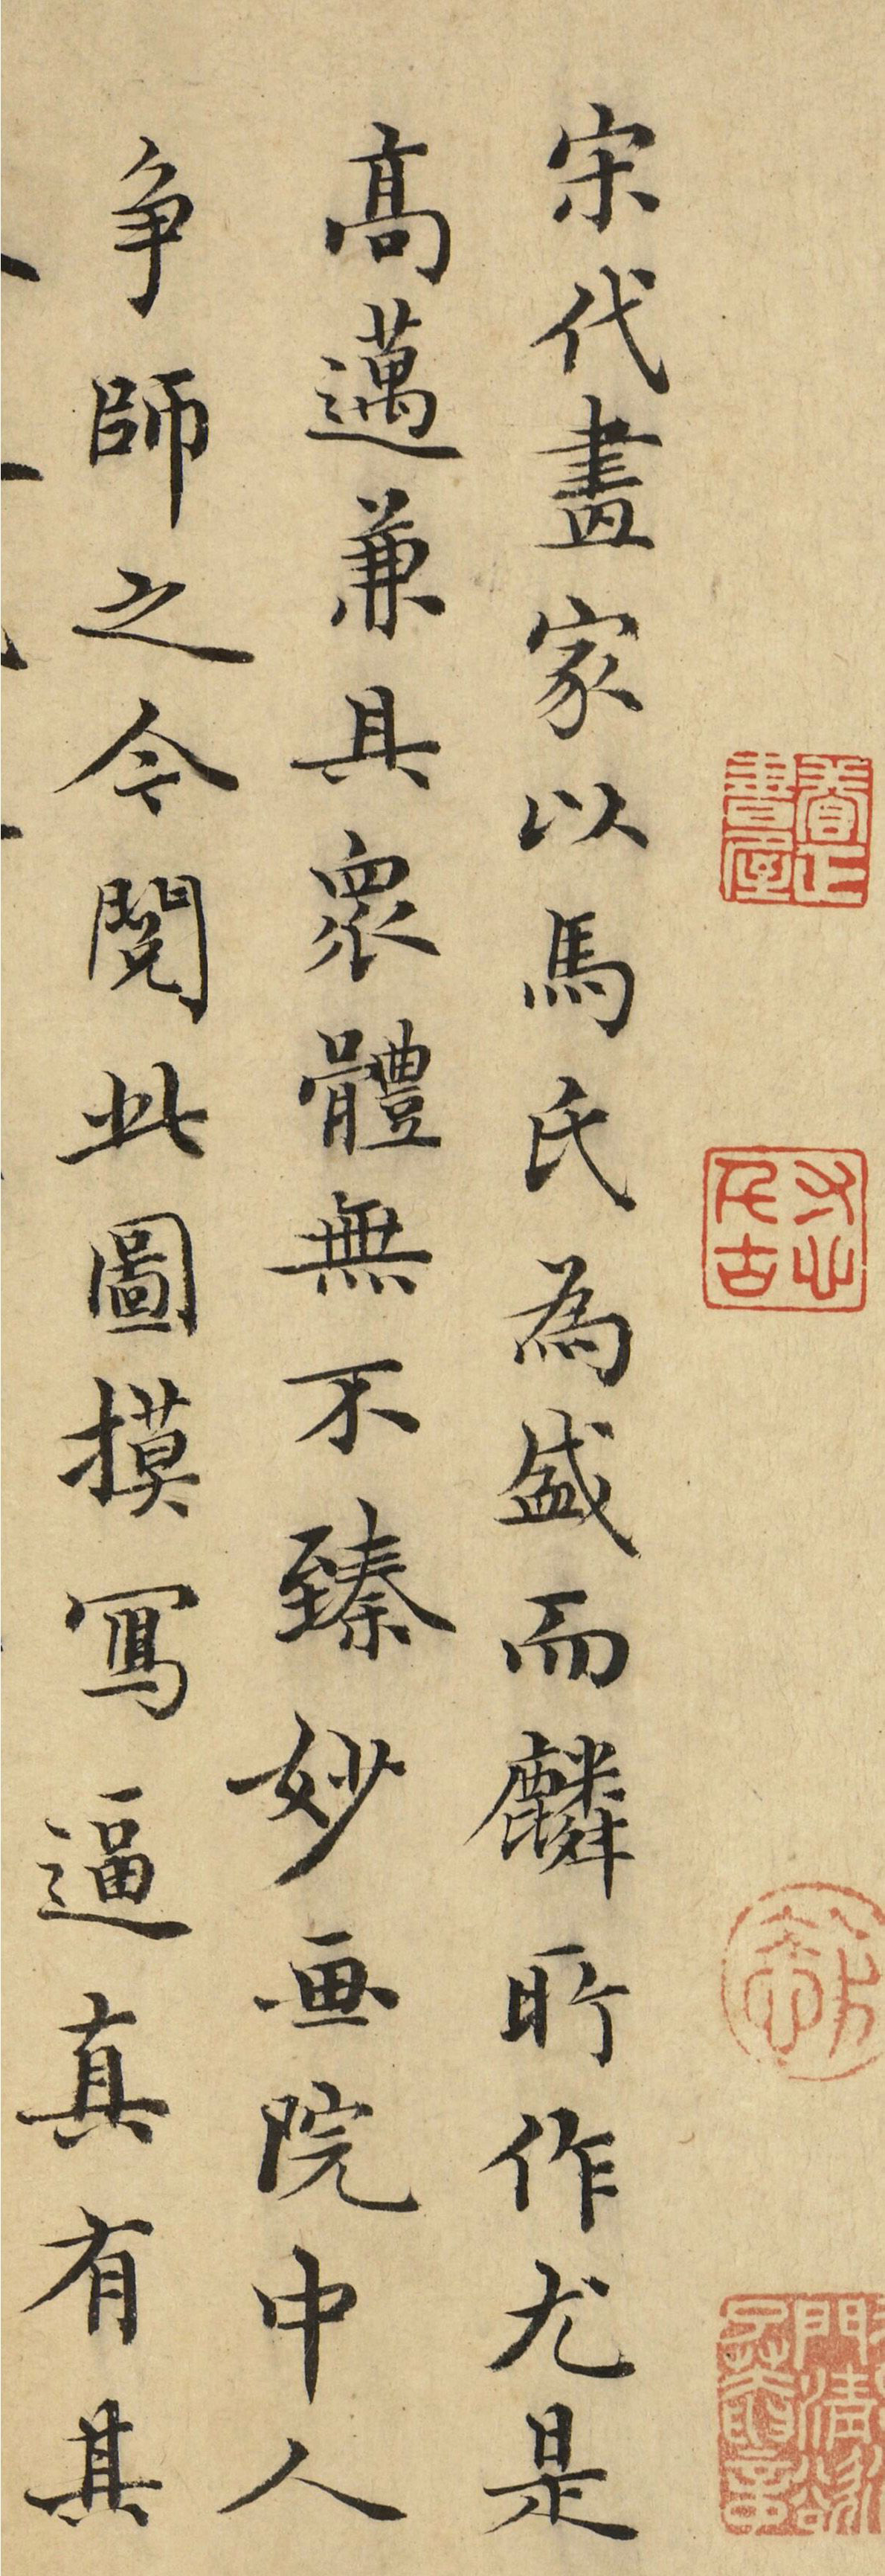 宋代畫家以馬氏為盛而麟所作尤是
高邁兼具衆體無不臻妙画院中人
争師之今閲此圖摸寫逼真有其